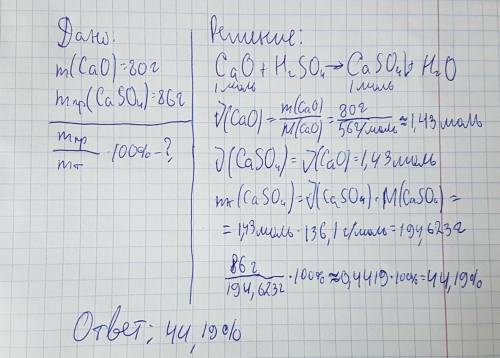 Дано:
m(CaO)=80г
mпр(CaSO₄)=86г
mпр/mт · 100% - ?
Решение:
CaO + H₂SO₄ → CaSO₄↓ + H₂O
1моль 1моль
ν(CaO) = m(CaO)/M(CaO) = 80г/56г/моль ≈ 1,43моль
ν(CaSO₄) = ν(CaO) = 1,43моль
mт(CaSO₄) = ν(CaSO₄) · M(CaSO₄) =
= 1,43моль · 136,1 г/моль = 194,623г
86г/194,623г · 100% ≈ 0,4419 · 100% = 44,19%
Ответ: 44,19%